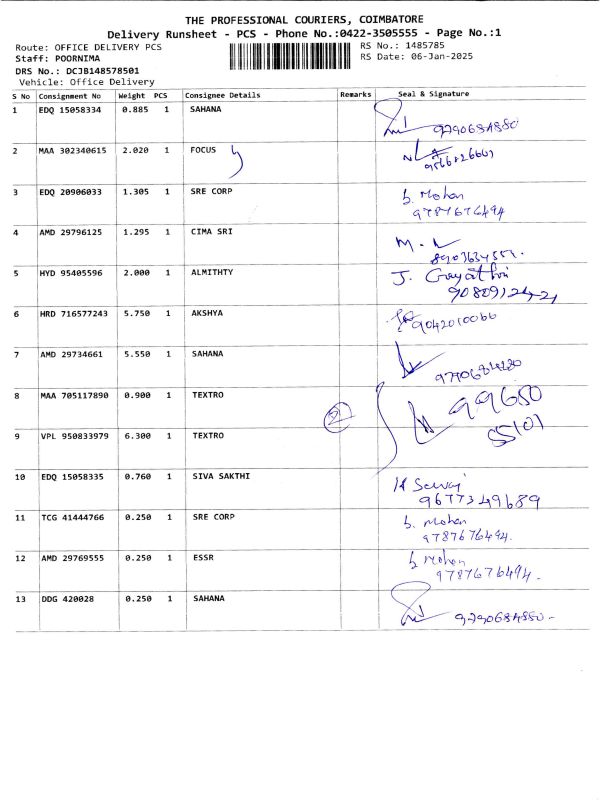 THE PROFESSIONAL COURIERS, COIMBATORE
Delivery Runsheet - PCS - Phone No.:0422-3505555 - Page No.:1
Route: OFFICE DELIVERY PCS
RS No.: 1485785
Staff: POORNIMA
RS Date: 06-Jan-2025
DRS No.: DCJB148578501
Vehicle: Office Delivery
S No Consignment No Weight PCS Consignee Details Remarks Seal & Signature
1 EDQ 15058334 0.885 1 SAHANA
9790684880
2 MAA 302340615 2.020 1 FOCUS
3 EDQ 20906033 1.305 1 SRE CORP b. Mohan
9787676494
4 AMD 29796125 1.295 1 CIMA SRI M.
5 HYD 95405596 2.000 1 ALMITHTY J. Gayathri
6 HRD 716577243 5.750 1 AKSHYA 9042010066
7 AMD 29734661 5.550 1 SAHANA
8 MAA 705117890 0.900 1 TEXTRO 2 99650
55101
9 VPL 950833979 6.300 1 TEXTRO
10 EDQ 15058335 0.760 1 SIVA SAKTHI
9677349689
11 TCG 41444766 0.250 1 SRE CORP b. Mohan
9787676494.
12 AMD 29769555 0.250 1 ESSR b Mohan
9787676494.
13 DDG 420028 0.250 1 SAHANA
9790684880-